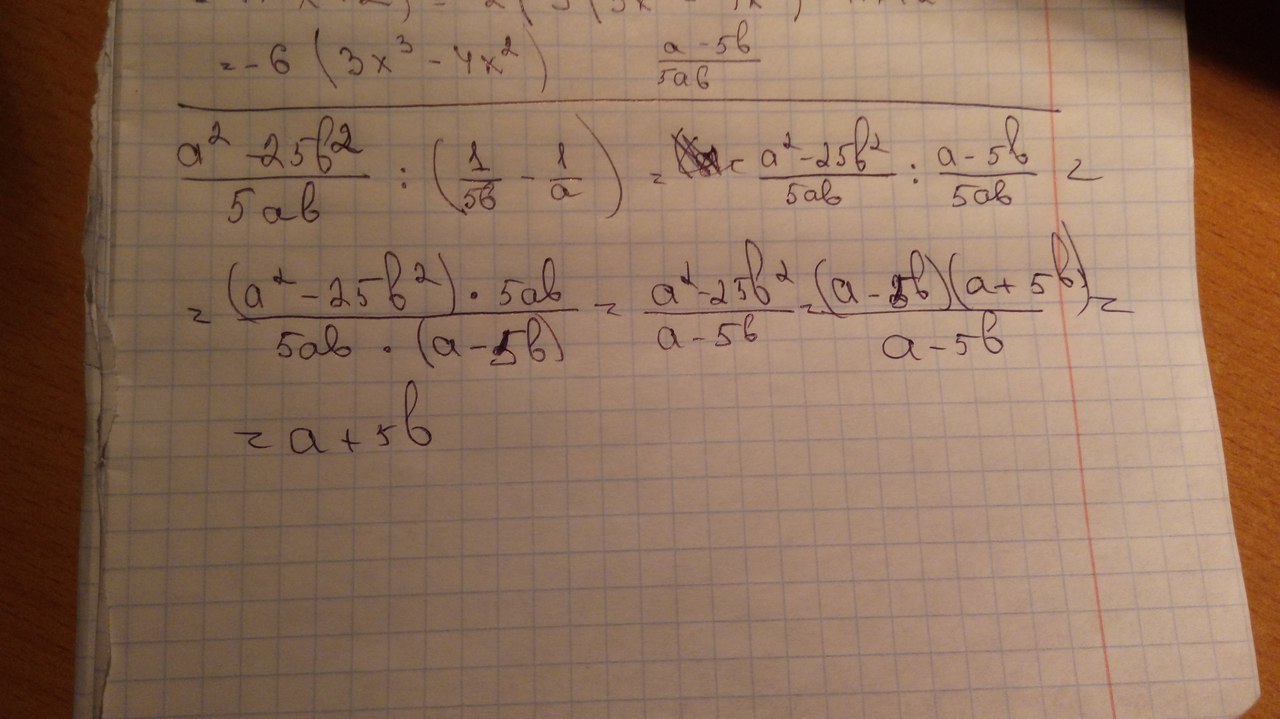 = -6 (3x³ - 4x²)
(a - 5b)/(5ab)
(a² - 25b²)/(5ab) : (1/(5b) - 1/a) = = (a² - 25b²)/(5ab) : (a - 5b)/(5ab) =
= ((a² - 25b²) · 5ab)/(5ab · (a - 5b)) = (a² - 25b²)/(a - 5b) = ((a - 5b)(a + 5b))/(a - 5b) =
= a + 5b